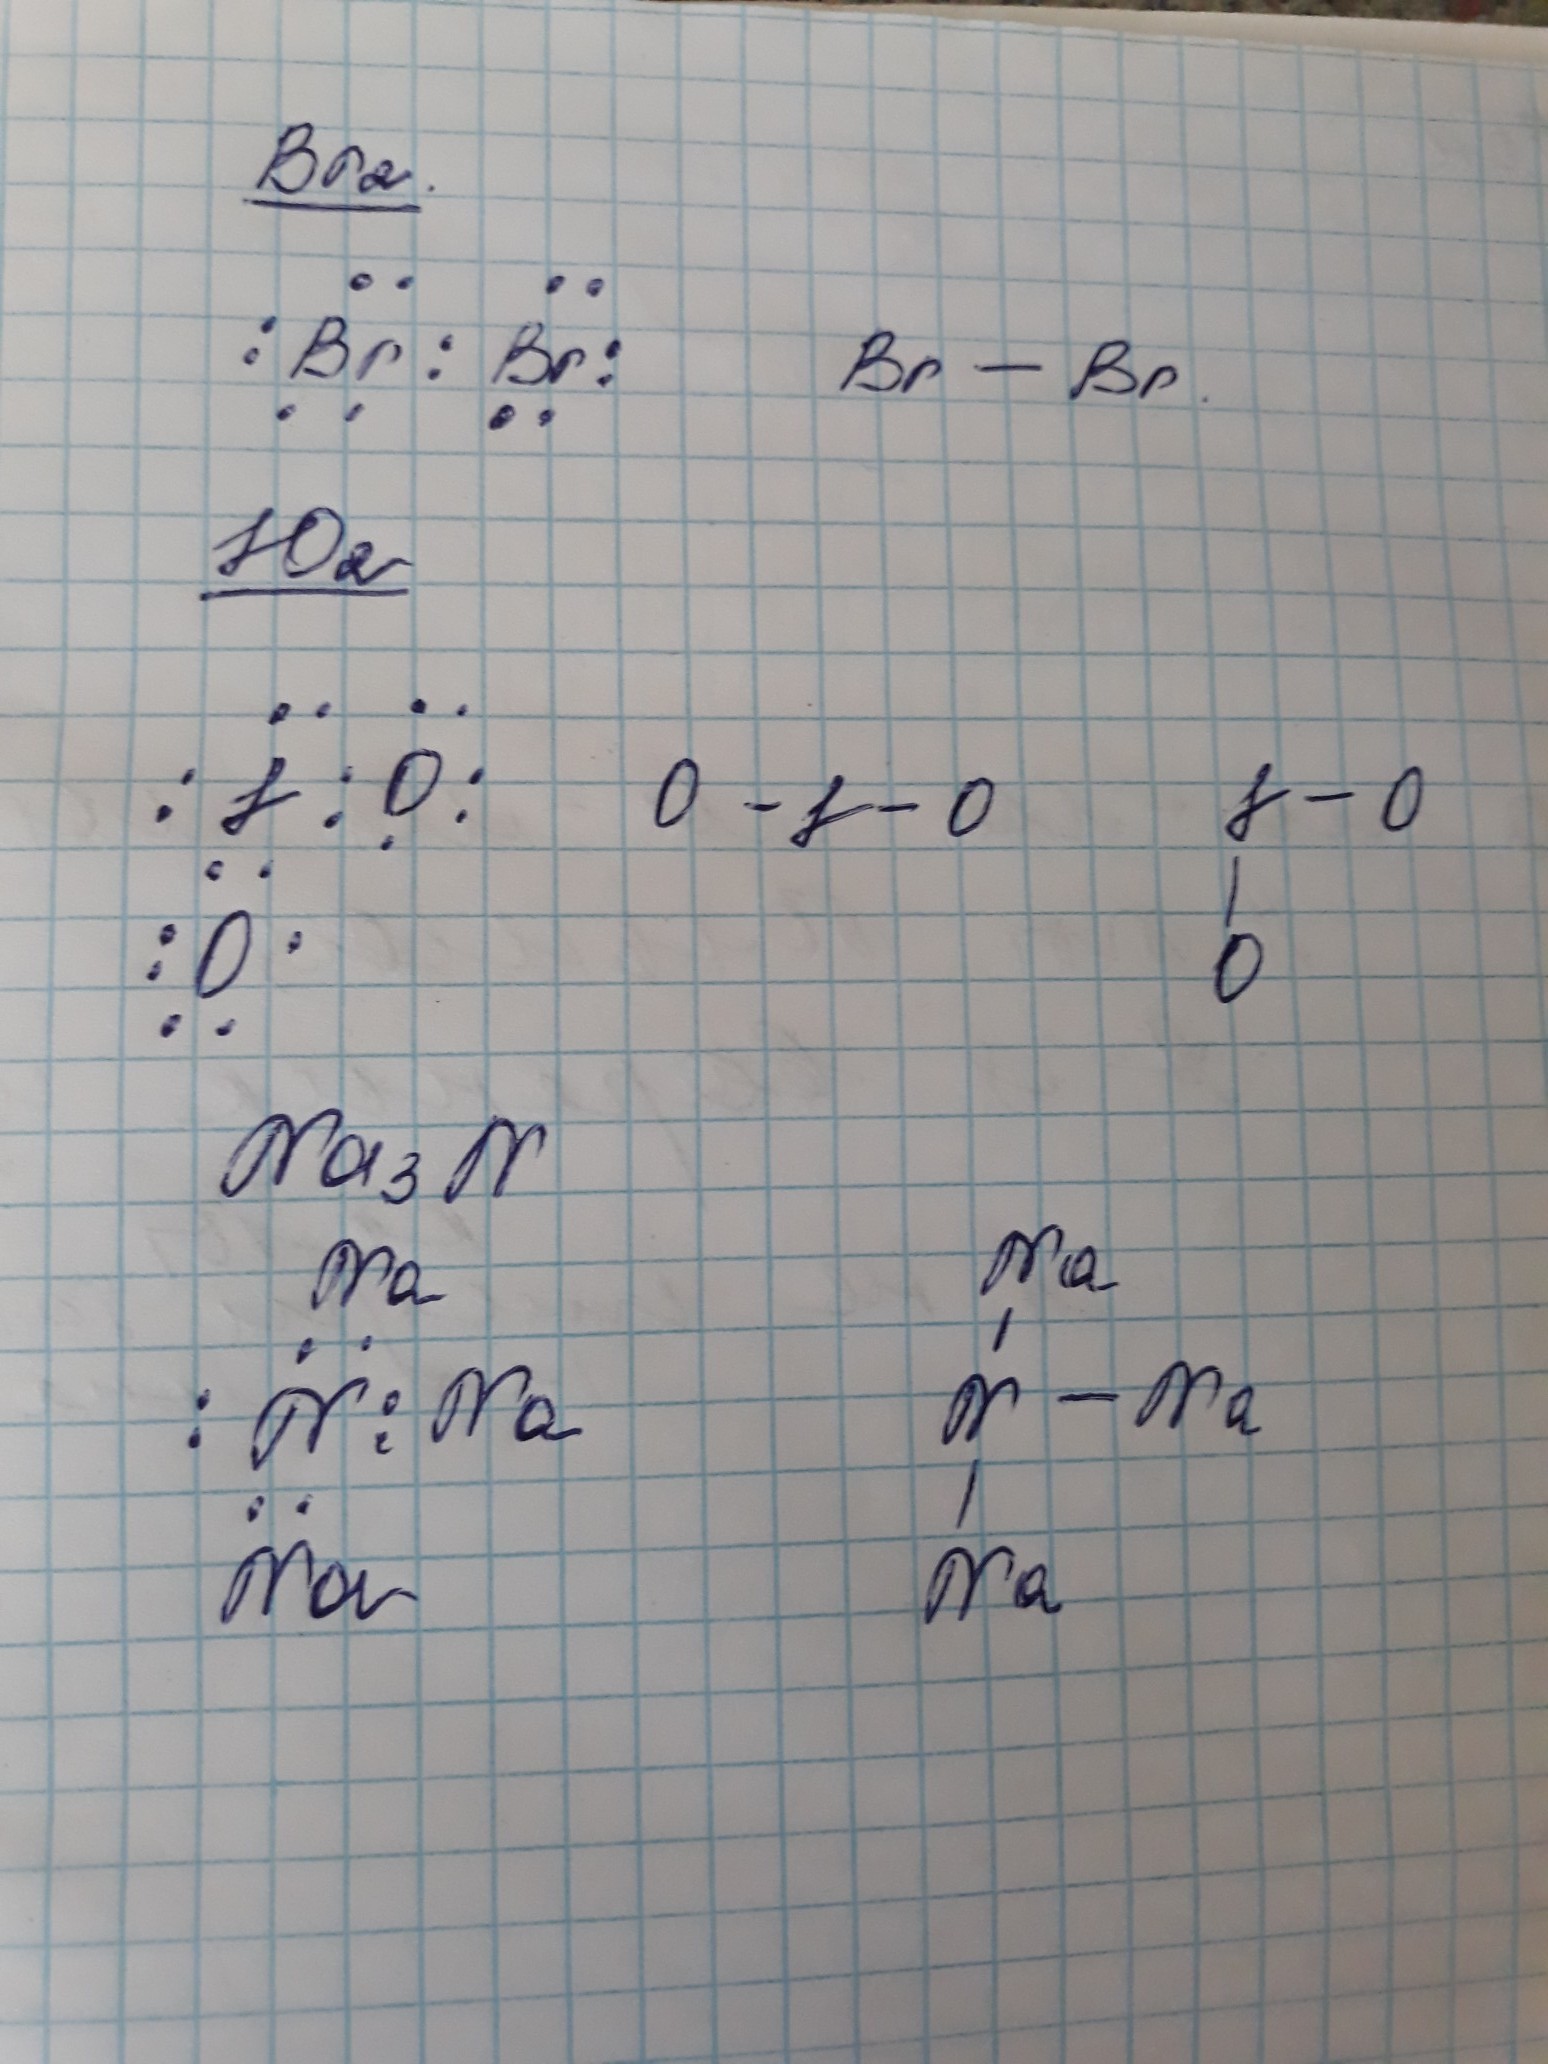 Br₂.
·· ··
:Br : Br: Br — Br.
·· ··
JO₂
·· ··
: J : O: O - J - O J - O
·· · |
:O· O
··
Na₃N
Na Na
·· |
: N : Na N — Na
·· |
Na Na